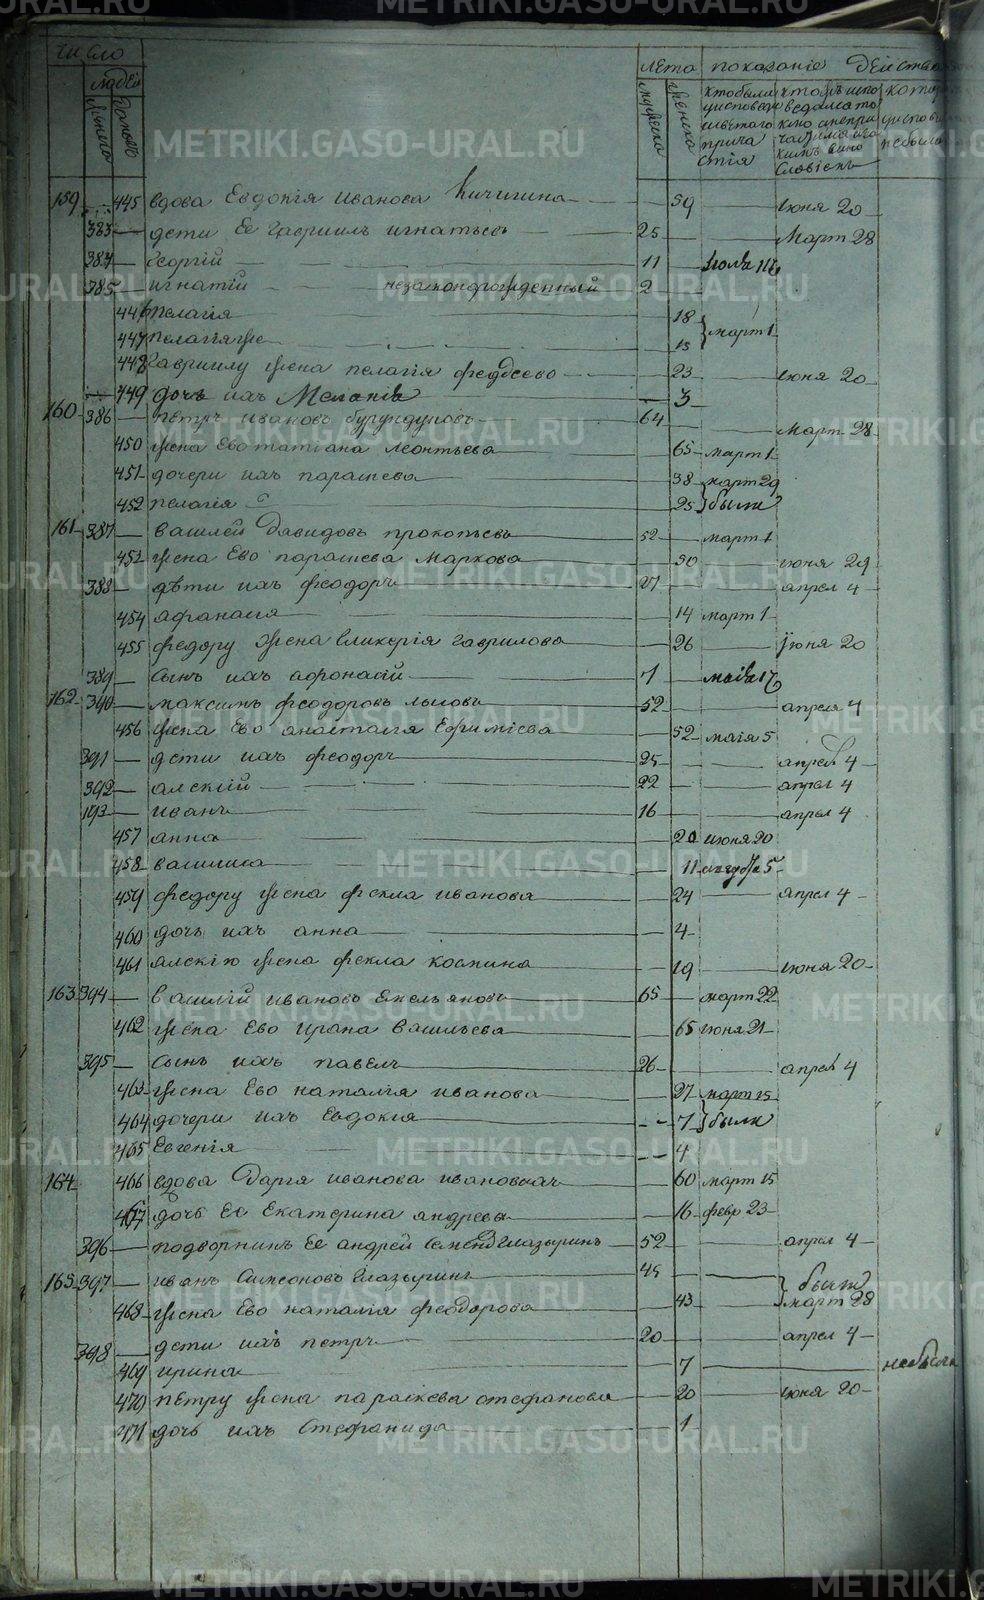 число
людей
лета показание действа
мужеска
женска
159 445 вдова Евдокія иванова Кичигина 59 июня 20
383 дети Ее гавриилъ игнатьевъ 25 Март 28
384 георгий 11
385 игнатій незаконорожденный 2
446 пелагія 18
март 1
447 пелагія же 15
448 гавриилу жена пелагія 23 июня 20
449 дочь ихъ Меланія 3
160 386 петръ ивановъ бурундуковъ 64 Март 28
450 жена Ево татіана леонтьева 65 март 1
451 дочери ихъ парасева 38 март 29
452 пелагія 25 были
161 387 василей давидовъ прокопьевъ 52 март 1
453 жена Ево парасева маркова 50 июня 29
388 дѣти ихъ феодоръ 27 апрел 4
454 афанасія 14 март 1
455 федору жена гликерія гаврилова 26 июня 20
389 сынъ ихъ афонасій 1
162 390 максимъ феодоровъ 52 апреля 4
456 жена Ево анастасія Ефимиева 52 маія 5
391 дети ихъ феодоръ 25 апрел 4
392 алексій 22 апрел 4
193 иванъ 16 апрел 4
457 анна 20 июня 20
458 василиса 11
459 федору жена фекла иванова 24 апрел 4
460 дочь ихъ анна 4
461 алексію жена фекла космина 19 июня 20
163 394 василій ивановъ Емельяновъ 65 март 22
462 жена Ево ирина васильева 65 июня 21
395 сынъ ихъ павелъ 26 апрел 4
463 жена Ево наталія иванова 27 март 15
464 дочери ихъ Евдокія 7 были
465 Евгенія 4
164 466 вдова Дарія иванова ивановская 60 март 15
467 дочь Ее Екатерина андреева 16 февр 23
396 подворникъ Ее андрей семенов глазыринъ 52 апрел 4
165 397 иванъ симеоновъ глазыринъ 45 были
468 жена Ево наталія феодорова 43 март 28
398 дети ихъ петръ 20 апрел 4
469 ирина 7 небыла
470 петру жена параскева стефанова 20 июня 20
471 дочь ихъ Стефанида 1
METRIKI.GASO-URAL.RU